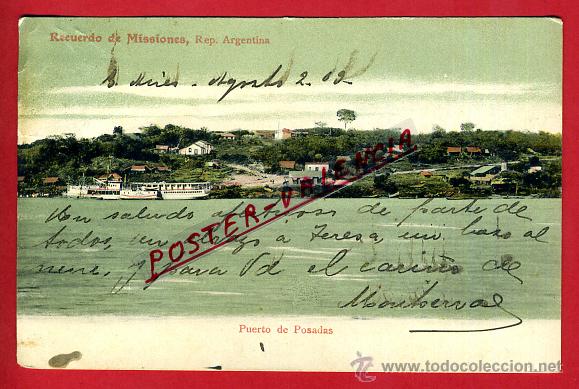 Recuerdo de Missiones, Rep. Argentina
B. Aires - Agosto 2 - 02
POSTER-VALENCIA
Un saludo de parte de
todos, un abrazo á Teresa un beso al
nene, y para Vd el cariño de
Montserrat
Puerto de Posadas
www.todocoleccion.net